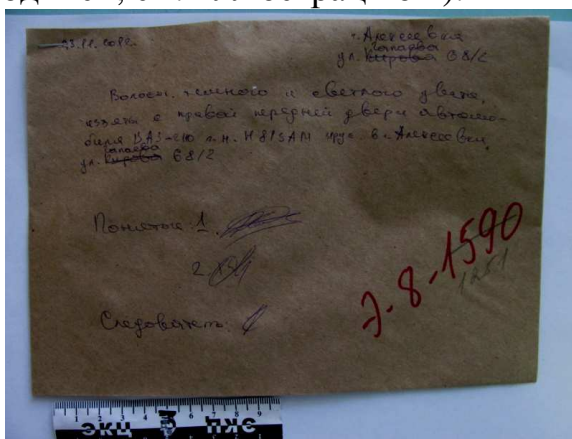 г. Алексеевка
Чапаева
ул. Кирова 68/2
Волосы темного и светлого цвета,
изъяты с правой передней двери автомо-
биля ВАЗ-210 г.н. Н 815 АМ в г. Алексеевка,
Чапаева
ул. Кирова 68/2
Понятые: 1.
2.
Следователь:
Э-8-1590
1251
1 2 3 4 5 6 7 8 9
ЭКЦ ЭКЦ